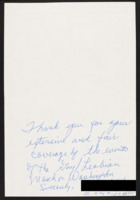 Thank you for your
extensive and fair
coverage of the events
of the Gay/Lesbian
March on Washington
Sincerely,